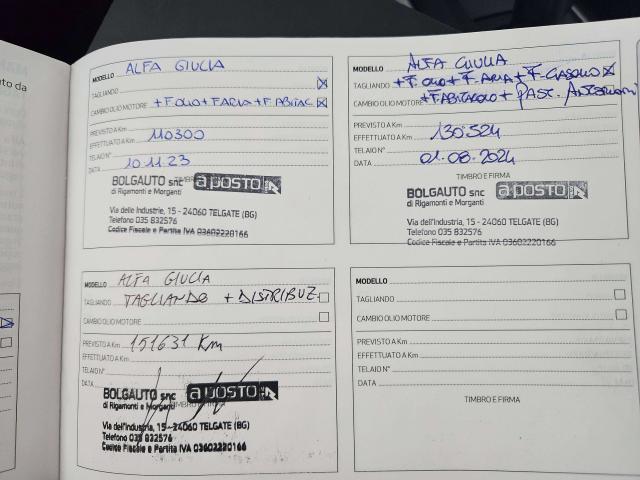 to da
MODELLO ALFA GIULIA
TAGLIANDO
CAMBIO OLIO MOTORE + F OLIO + F ARIA + F. ABITAC
PREVISTO A Km
EFFETTUATO A Km 110300
TELAIO N°
DATA 10.11.23
BOLGAUTO snc a posto
di Rigamonti e Morganti
Via delle Industrie, 15 - 24060 TELGATE (BG)
Telefono 035 832576
Codice Fiscale e Partita IVA 03602220166
MODELLO ALFA GIULIA
TAGLIANDO + F. OLIO + F. ARIA + F. GASOLIO
CAMBIO OLIO MOTORE + F. ABITACOLO + PAST. ANTERIORI
PREVISTO A Km
EFFETTUATO A Km 130.524
TELAIO N°
DATA 01.08.2024
TIMBRO E FIRMA
BOLGAUTO snc a posto
di Rigamonti e Morganti
Via dell'Industria, 15 - 24060 TELGATE (BG)
Telefono 035 832576
Codice Fiscale e Partita IVA 03602220166
MODELLO ALFA GIULIA
TAGLIANDO TAGLIANDO + DISTRIBUZ.
CAMBIO OLIO MOTORE
PREVISTO A Km 151631 Km
EFFETTUATO A Km
TELAIO N°
DATA
BOLGAUTO snc a posto
di Rigamonti e Morganti
Via dell'Industria, 15 - 24060 TELGATE (BG)
Telefono 035 832576
Codice Fiscale e Partita IVA 03602220166
MODELLO
TAGLIANDO
CAMBIO OLIO MOTORE
PREVISTO A Km
EFFETTUATO A Km
TELAIO N°
DATA
TIMBRO E FIRMA